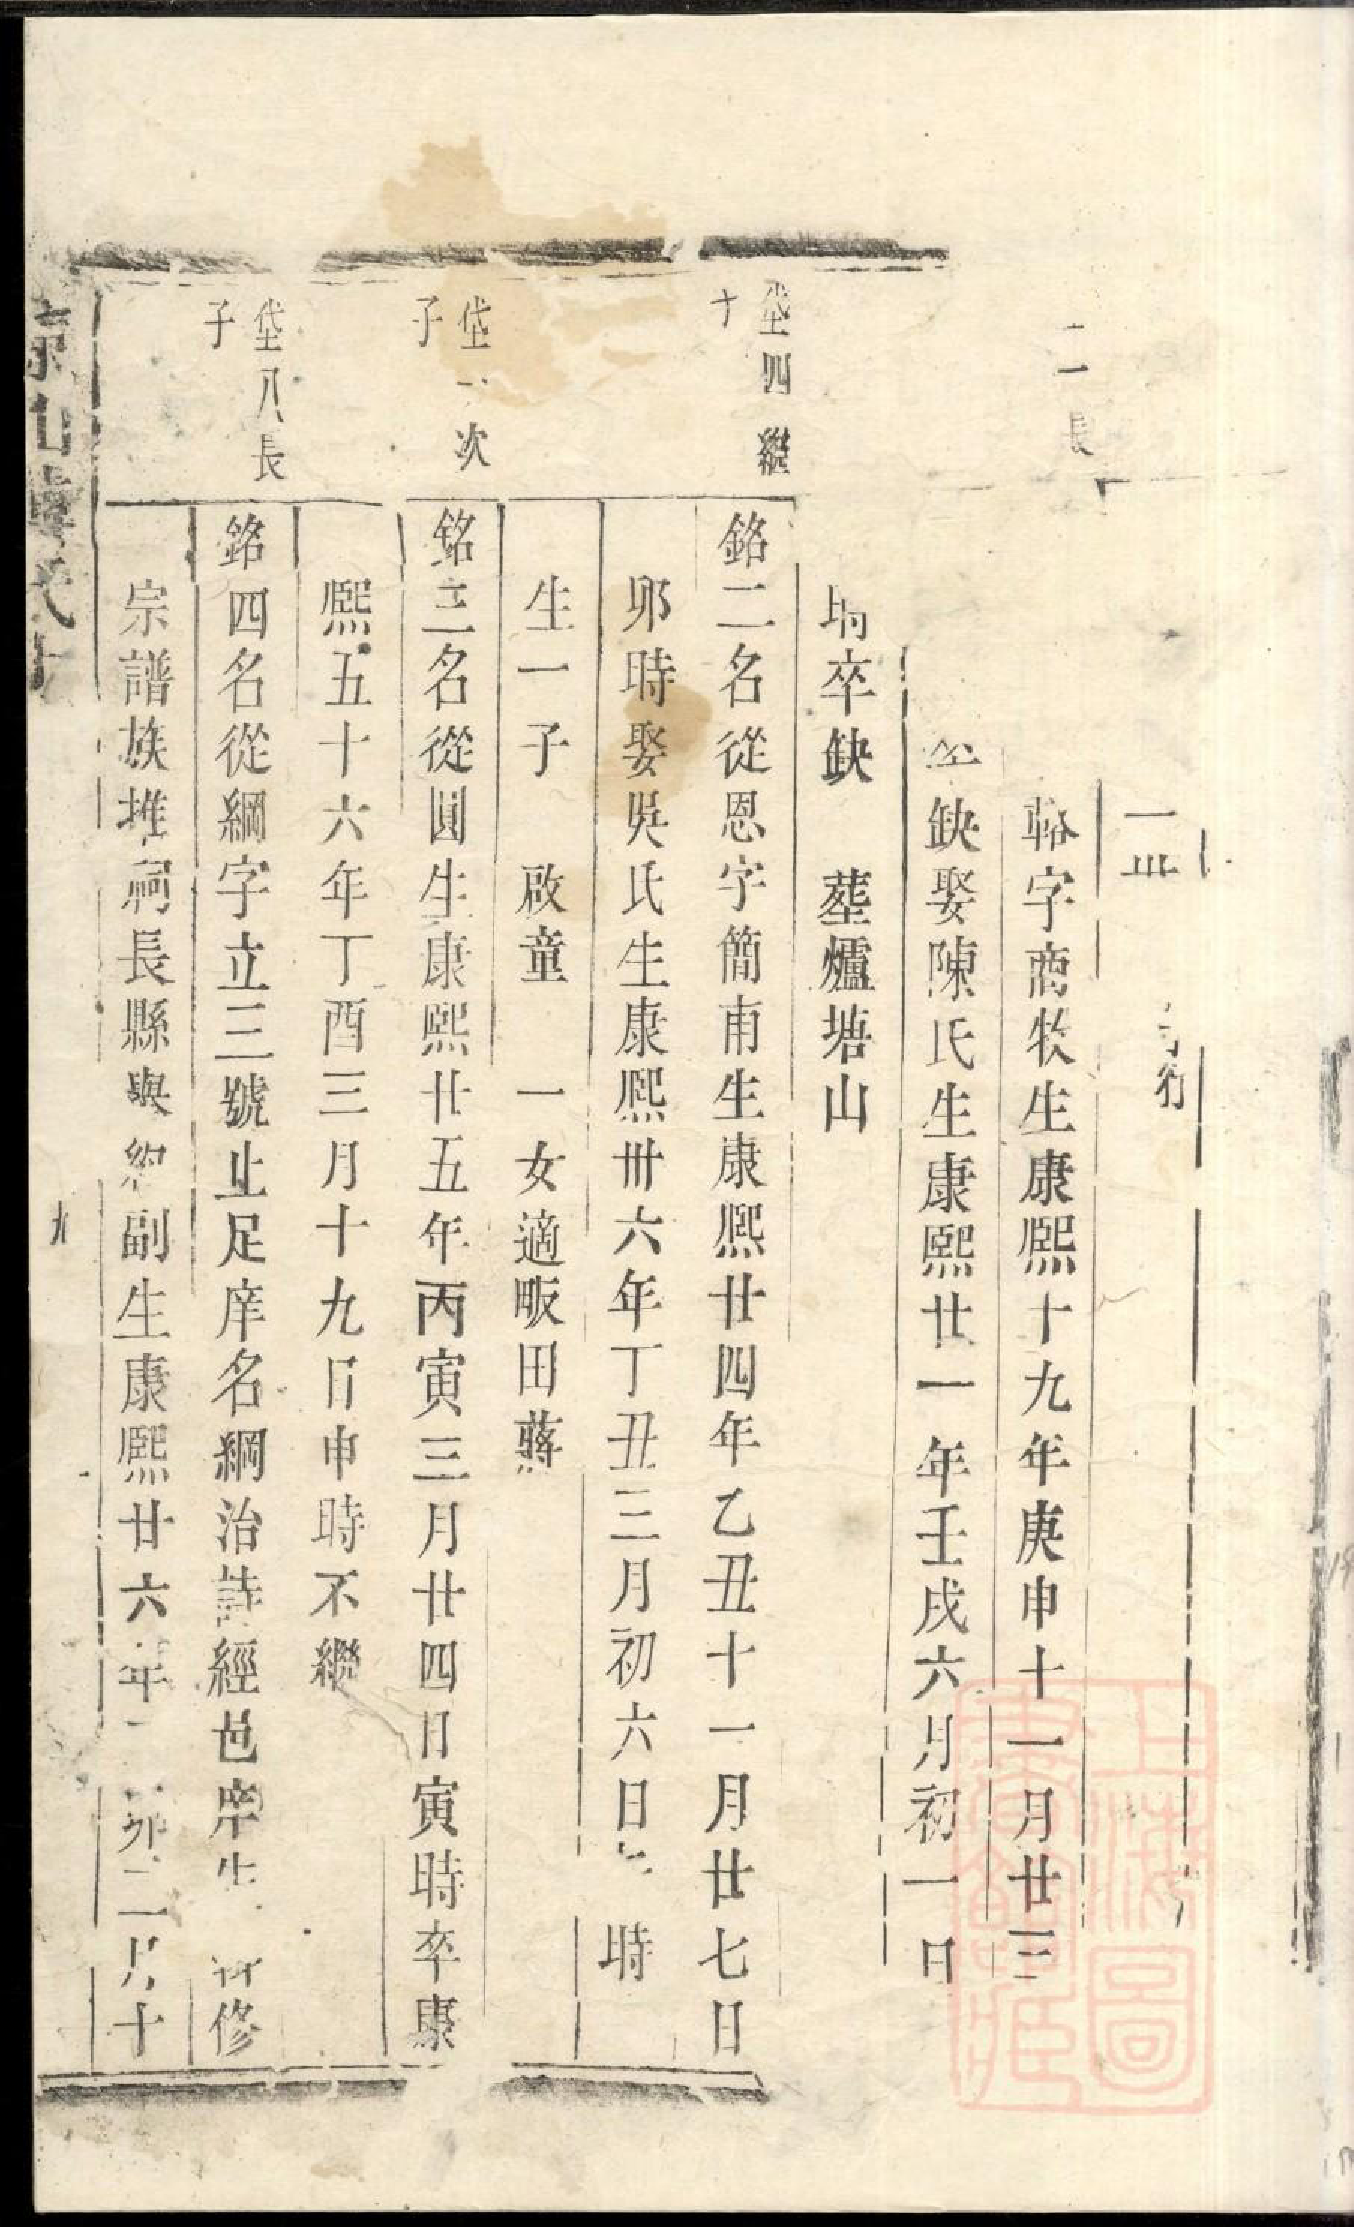 二一長
字行
字商牧生康熙十九年庚申十一月廿三
缺娶陳氏生康熙廿一年壬戌六月初一日
卒缺 塟爐塘山
垈四繼
銘二名從恩字簡甫生康熙廿四年乙丑十一月廿七日
卯時娶吳氏生康熙卅六年丁丑三月初六日 時
生一子 啟童 一女適畈田蔣
垈一次子
銘三名從圓生康熙廿五年丙寅三月廿四日寅時卒康
熙五十六年丁酉三月十九日申時不繼
垈八長子
銘四名從綱字立三號止足庠名綱治詩經邑庠生 修
宗譜族推祠長縣與 副生康熙廿六年 卯二月十
九
上海圖書館藏